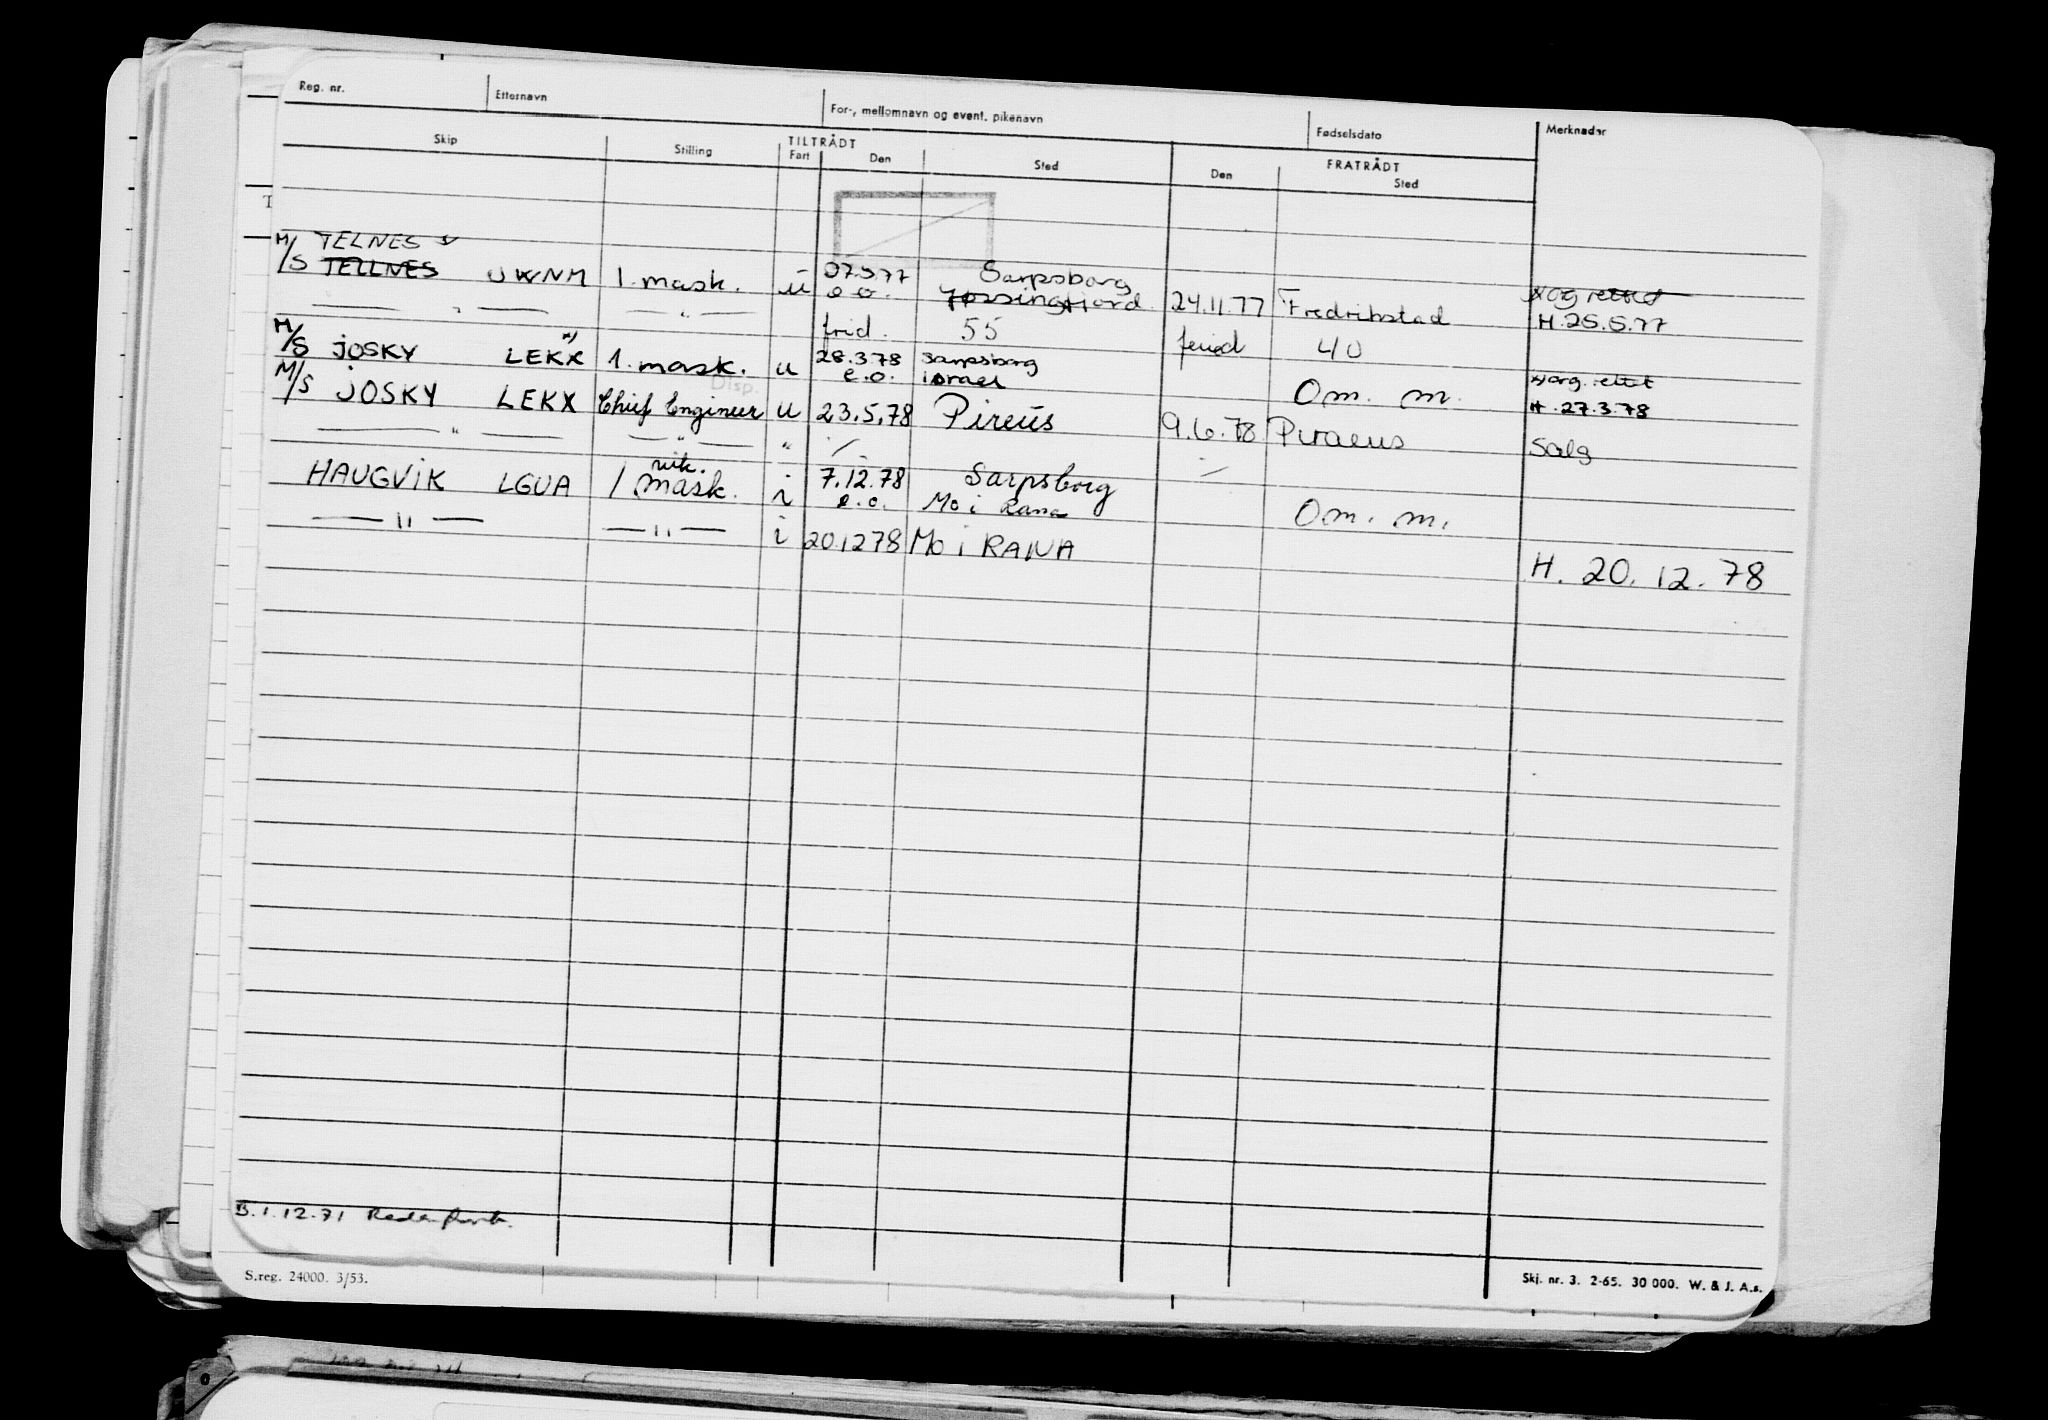 Reg. nr. Etternavn For-, mellomnavn og event. pikenavn Fødselsdato Merknader
Skip Stilling TILTRÅDT FRATRÅDT
Fart Den Sted Den Sted
M/S TELNES
TELLNES JWNM 1. mask. u 07.5.77 Sarpsborg
e.o. Jøssingfjord 24.11.77 Fredrikstad
H.25.5.77
— " — — " — frid. 55 feried 40
M/S JOSKY LEKX 1. mask. u 28.3.78 Sarpsborg
e.o. israel Om. m. rettet
H.27.3.78
Disp.
M/S JOSKY LEKX Chief Engineer u 23.5.78 Pireüs 9.6.78 Piraeus Salg
— " — — " — "
HAUGVIK LGUA 1 vik. mask. i 7.12.78 Sarpsborg
e.o. Mo i Rana Om. m.
— " — — " — i 201278 Mo i RANA H. 20.12.78
B.1.12.71
S.reg. 24000. 3/53. Skj. nr. 3. 2-65. 30 000. W. & J. A.s.